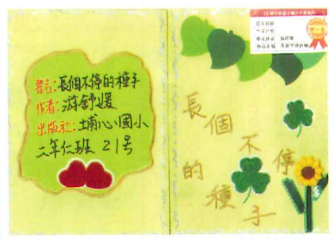 書名:長個不停的種子
作者:游舒媛
出版社:埔心國小
二年仁班 21号
長個不停
的種子